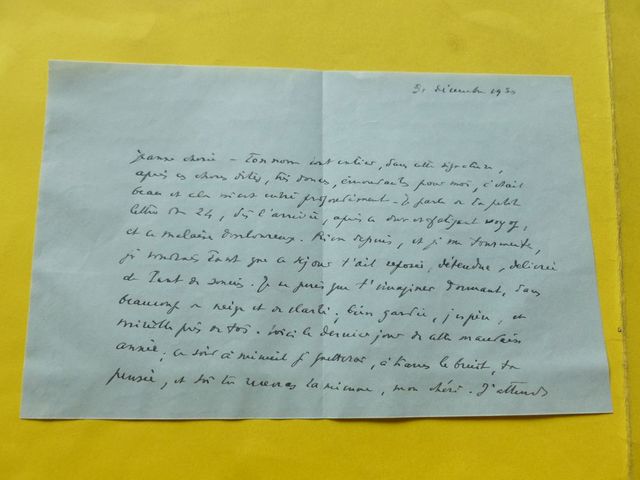 31 décembre 1930
Jeanne chérie - Ton nom tout entier, dans cette signature,
après ces choses dites, très douces, émouvantes pour moi, c'était
beau et cela m'est entré profondément - Je parle de ta petite
lettre du 24, dès l'arrivée, après ce dur et fatigant voyage,
et ce malaise douloureux. Rien depuis, et je me tourmente,
je voudrais tant que ce séjour t'ait reposée, détendue, délivrée
de tant de soucis. Je ne puis que t'imaginer dormant, dans
beaucoup de neige et de clarté, bien gardée, j'espère, et
près de toi. Voici le dernier jour de cette mauvaise
année, ce soir à minuit je guetterai, à travers le bruit, ta
pensée, et toi tu recevras la mienne, mon chéri. J'attends